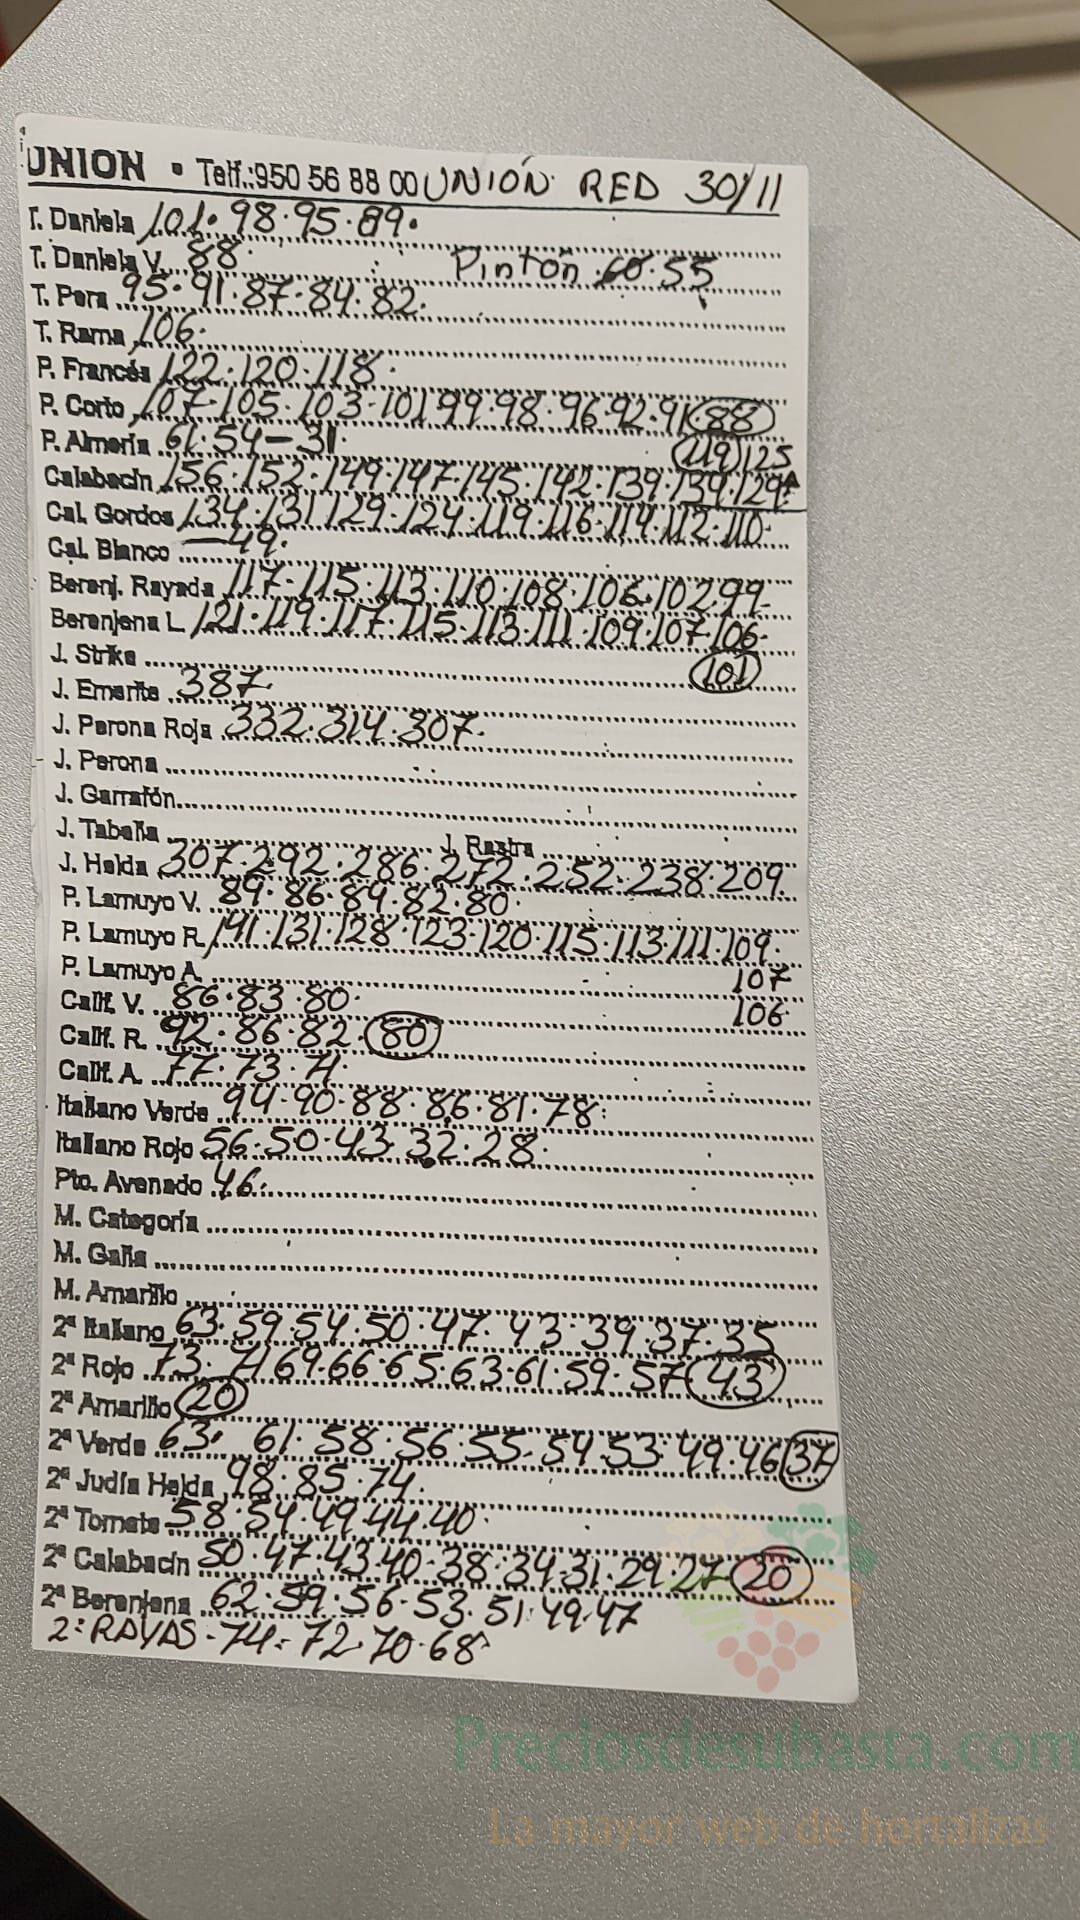 UNION • Telf.:950 56 88 00 UNIÓN RED 30/11
T. Daniela 101·98·95·89·
T. Daniela V. 88· Pintón 60·55
T. Pera 95·91·87·84·82·
T. Rama 106·
P. Francés 122·120·118·
P. Corto 107·105·103·101 99·98·96·92·91 88
P. Almería 61·54–31· 119 125
Calabacín 156·152·149·147·145·142·139·134·129
Cal. Gordos 134·131 129·124·119·116·114·112·110·
Cal. Blanco –49·
Berenj. Rayada 117·115·113·110·108·106·102 99·
Berenjena L. 121·119·117·115·113·111·109·107·106·
J. Strike 101
J. Emerite 387·
J. Perona Roja 332·314·307·
J. Perona
J. Garrafón
J. Tabella J. Rastra
J. Helda 307·292·286·272·252·238·209·
P. Lamuyo V. 89·86·84·82·80·
P. Lamuyo R. 141·131·128·123·120·115·113·111·109·
P. Lamuyo A. 107
Calif. V. 86·83·80· 106
Calif. R. 92·86·82·80
Calif. A. 77·73·71·
Italiano Verde 94·90·88·86·81·78·
Italiano Rojo 56·50·43·32·28·
Pto. Avenado 46·
M. Categoría
M. Galia
M. Amarillo
2ª Italiano 63·59·54·50·47·43·39·37·35
2ª Rojo 73·71 69·66·65·63·61·59·57 43
2ª Amarillo 20
2ª Verde 63· 61·58·56·55·54·53·49·46 37
2ª Judía Helda 98·85·74·
2ª Tomate 58·54·49·44·40·
2ª Calabacín 50·47·43·40·38·34·31·29·27 20
2ª Berenjena 62·59·56·53·51·49·47
2ª RAYAS·74·72·70·68
Preciosdesubasta.com
La mayor web de hortalizas